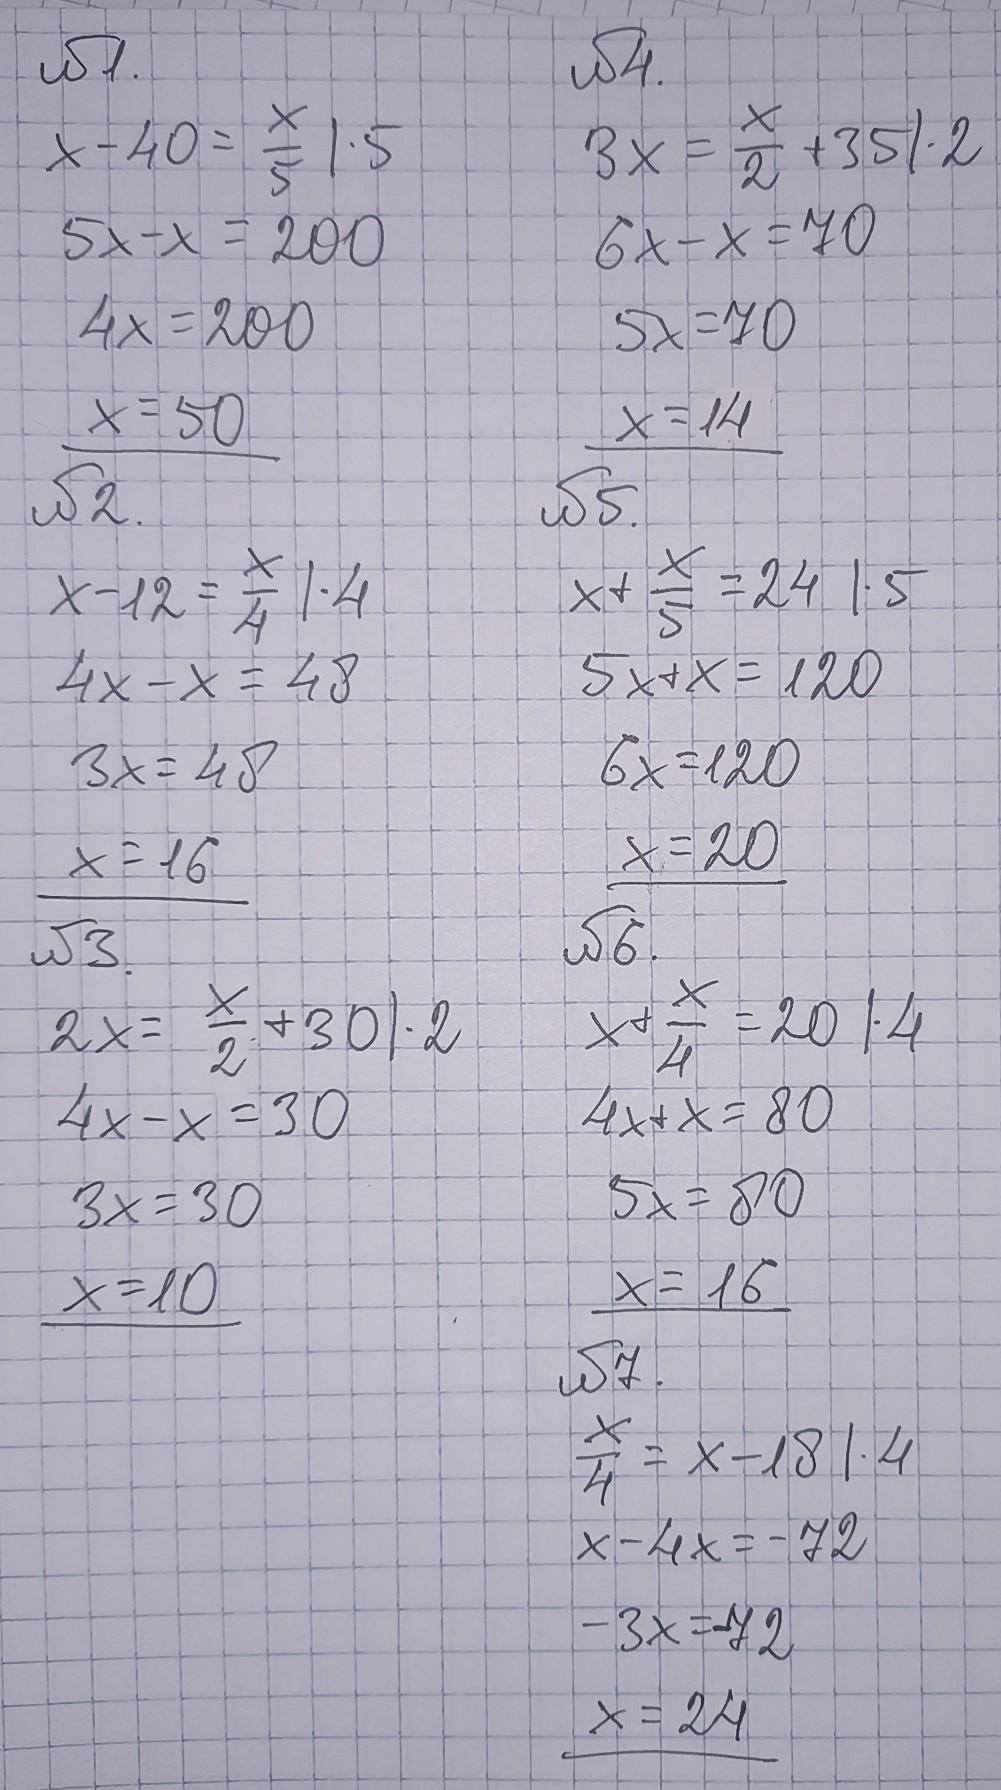 №1.
x-40=x/5 |·5
5x-x=200
4x=200
x=50
№2.
x-12=x/4 |·4
4x-x=48
3x=48
x=16
№3.
2x=x/2+30|·2
4x-x=30
3x=30
x=10
№4.
3x=x/2+35|·2
6x-x=70
5x=70
x=14
№5.
x+x/5=24 |·5
5x+x=120
6x=120
x=20
№6.
x+x/4=20 |·4
4x+x=80
5x=80
x=16
№7.
x/4=x-18|·4
x-4x=-72
-3x=-72
x=24